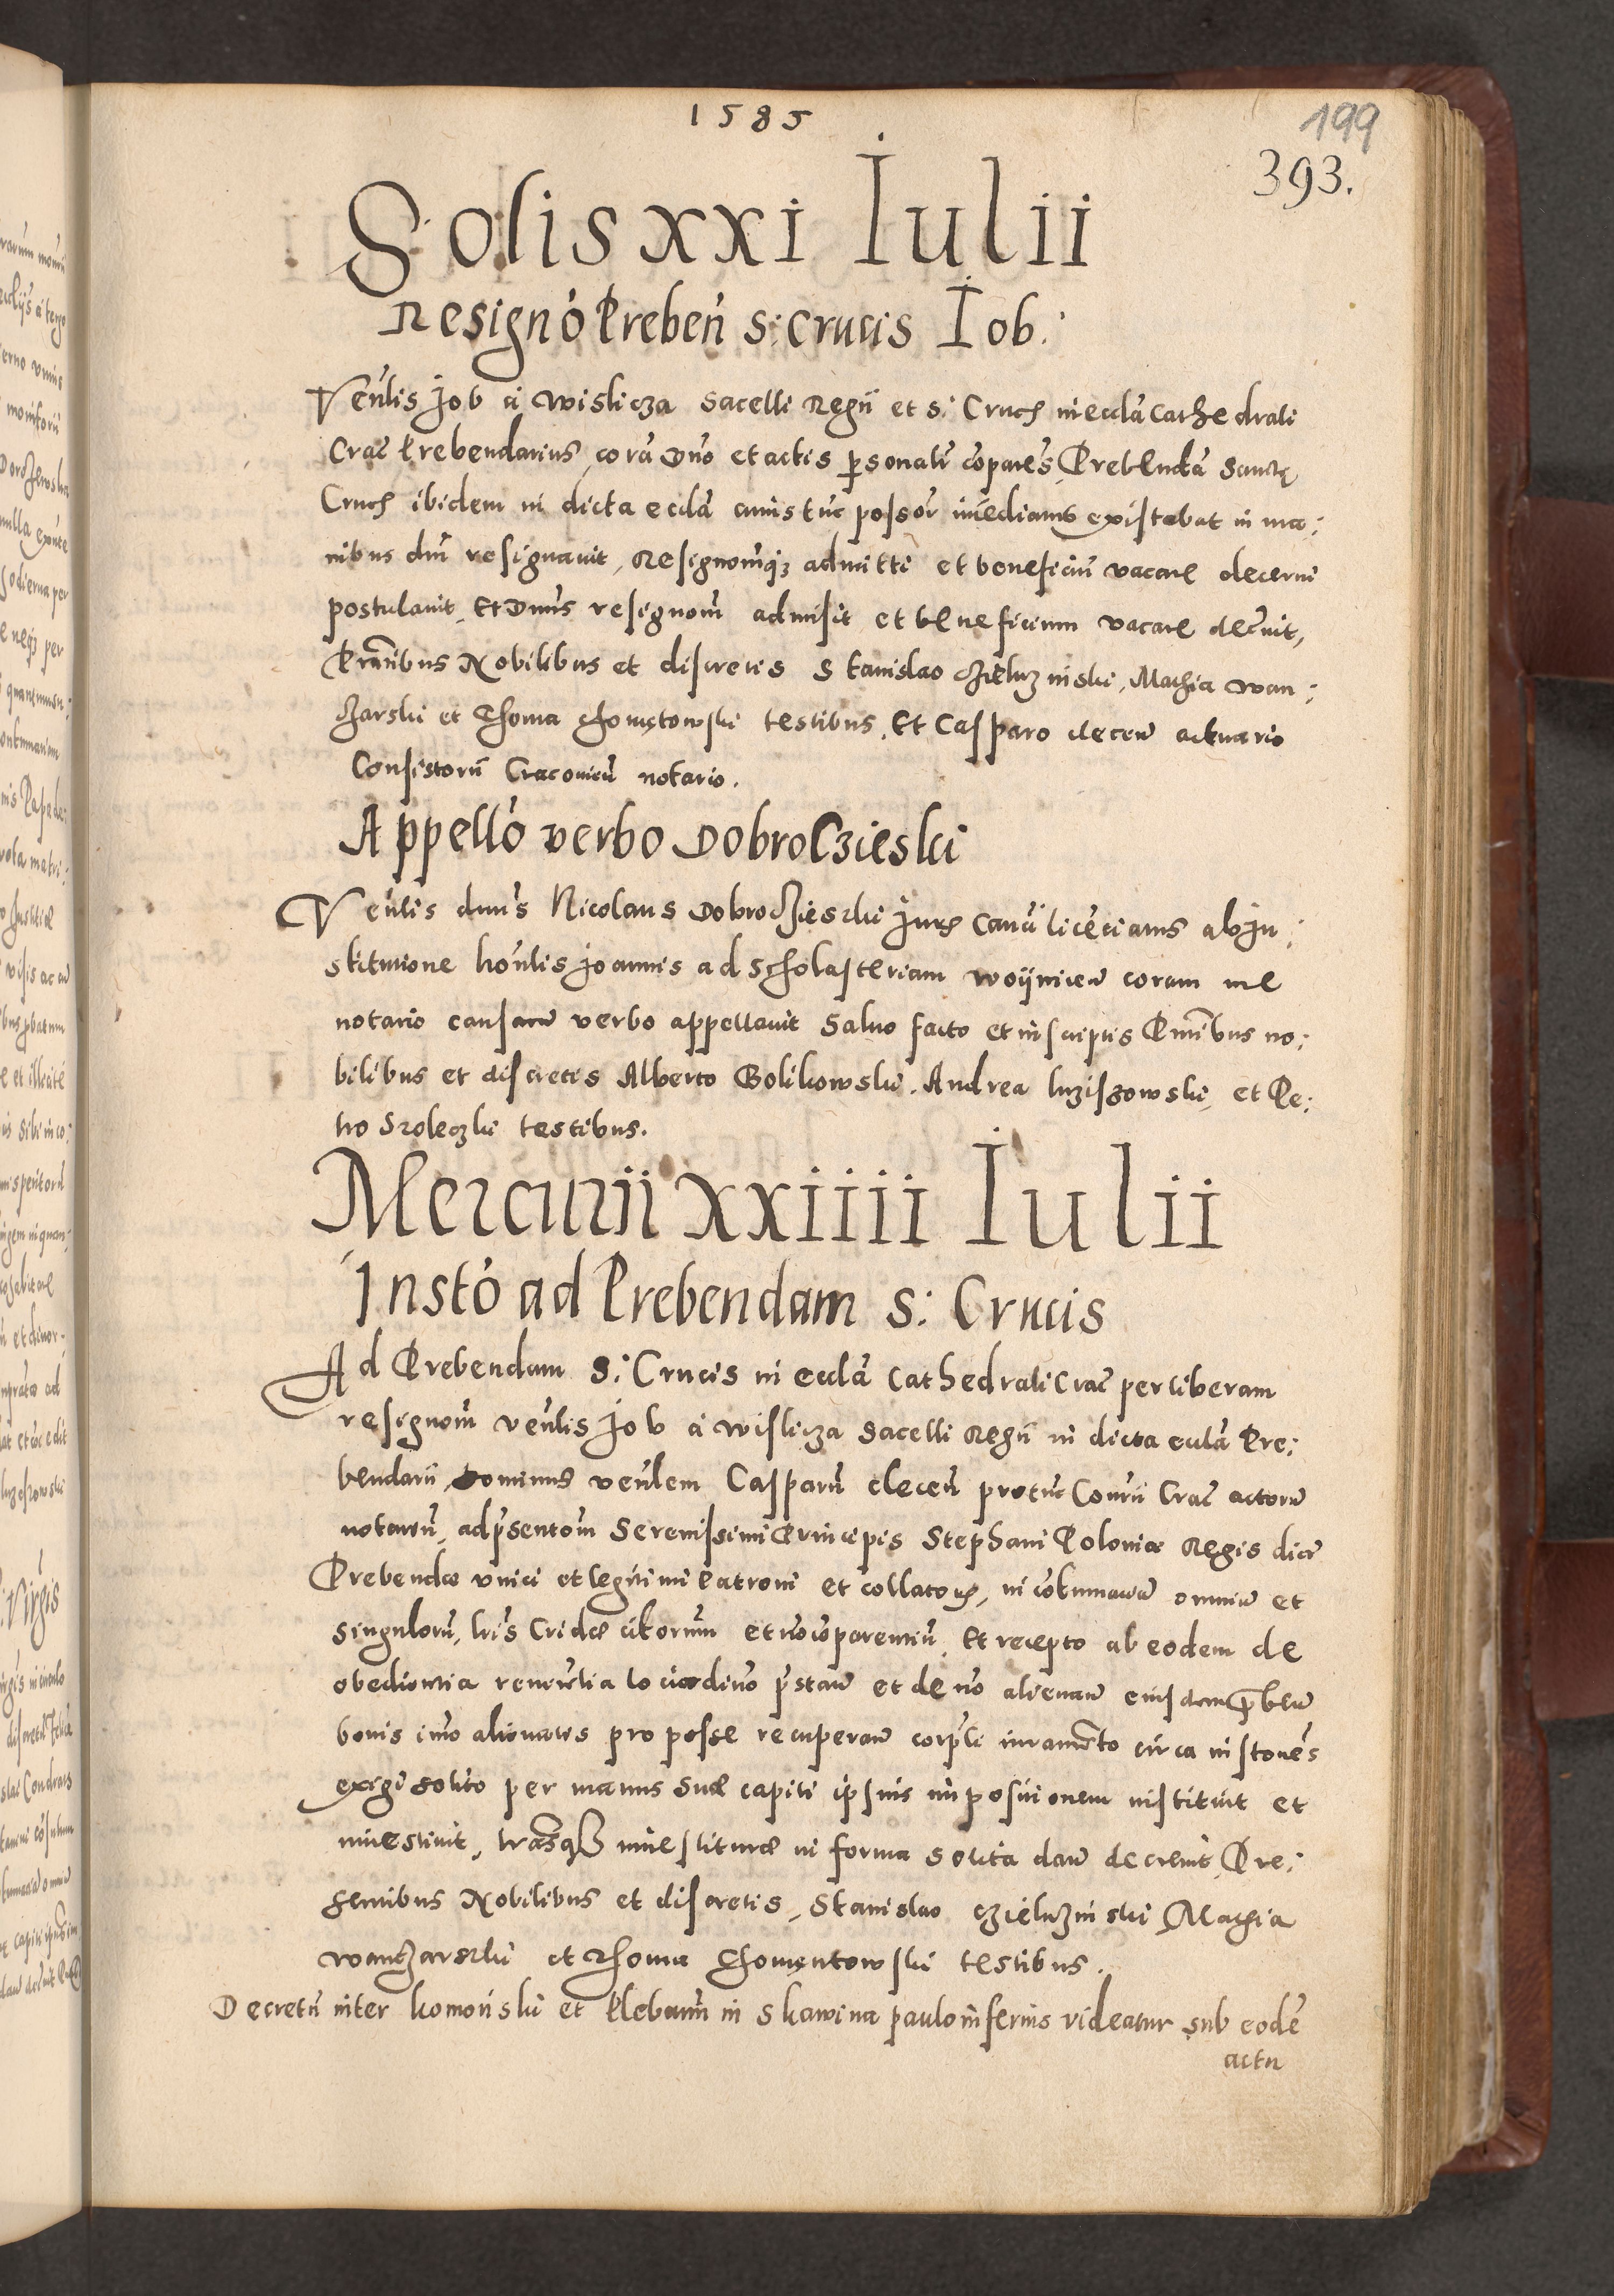 1585
199
393.
Solis xxi Iulii
Resigno Preben S: Crucis Iob:
Venlis Job a Wislicza Sacelli Regii et S: Crucis in eccla Cathedrali
Crac Prebendarius, cora Dno et actis personalr compares, Prebenda Sancte
Crucis ibidem in dicta eccla cuius tunc possor immediatus existebat in ma:
nibus dni resignavit, Resignomqz admitti et beneficiu vacare decerni
postulavit, Et Dnus resignom admisit et beneficium vacare decrevit,
Prntibus Nobilibus et discretis Stanislao Czieluzniski, Mathia Wan:
czarski et Thoma Chometowski testibus, Et Casparo clecen actuario
Consistorii Cracovien notario.
Appello verbo Dobroczieski
Venlis dnus Nicolaus Dobrocziesski Juris Canci licenciatus ab In:
stitutione honlis Joannis ad Scholasteriam Woijnicen coram me
notario causarum verbo appellavit Salvo facto et in scriptis Pntibus no:
bilibus et discretis Alberto Golikowski, Andrea luziszowski, et Pe:
tro Sroleczki testibus.
Mercurii xxiiii Iulii
Insto ad Prebendam S: Crucis
Ad Prebendam S: Crucis in eccla Cathedrali Crac per liberam
resignom venlis Job a Wislicza Sacelli Regii in dicta eccla Pre:
bendarii, Dominus venlem Casparu clecen protunc Consrii Crac actoru
notariu, ad presentom Serenissimi Principis Stephani Poloniae Regis dicte
Prebendae unici et legitimi Patroni et collatoris, in cotumatia omniu et
singuloru, lris Cridae citorum et no compareniu, Et recepto ab eodem de
obedientia reverentia loci ordino prestan et de no alienan eiusdem preben
bonis imo alienatis pro posse recuperan corpli iuramento circa instones
exigi solito per manus suae capiti ipsius impositionem instituit et
investivit, lrasqz investiturae in forma solita dari decrevit, Pre:
sentibus Nobilibus et discretis, Stanislao Czieluzniski Mathia
Wanczarski et Thoma Chomentowski testibus.
Decretu inter Komonski et Plebanu in Skawina paulo inferius videatur sub eode
actu